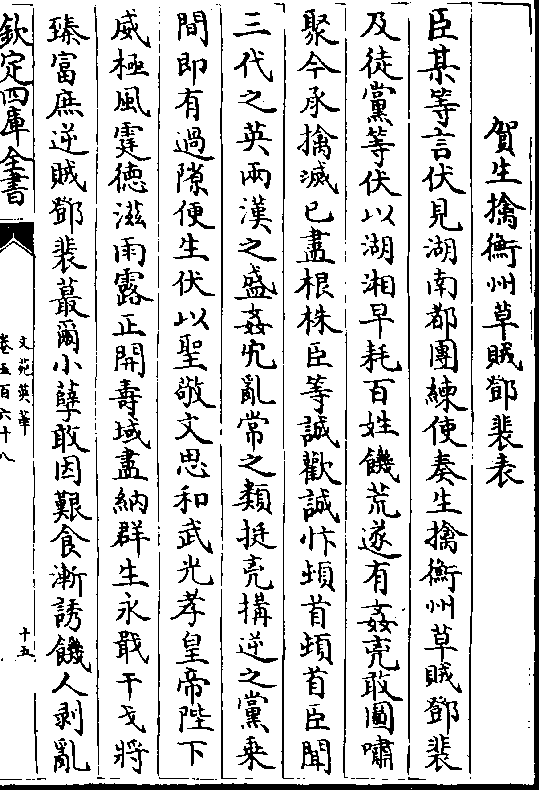 賀生擒衡州草賊鄧裴表
臣某等言伏見湖南都團練使奏生擒衡州草賊鄧裴
及徒黨等伏以湖湘旱耗百姓饑荒遂有姦兇敢圖嘯
聚今承擒滅已盡根株臣等誠歡誠忭頓首頓首臣聞
三代之英兩漢之盛姦宄亂常之類挺兇搆逆之黨乗
間即有過隙便生伏以聖敬文思和武光孝皇帝陛下
威極風霆德滋雨露正開壽域盡納群生永戢干戈將
臻富庶逆賊鄧裴蕞爾小孽敢因艱食漸誘饑人剥亂
欽定四庫全書
文苑英華
卷五百六十八
十五